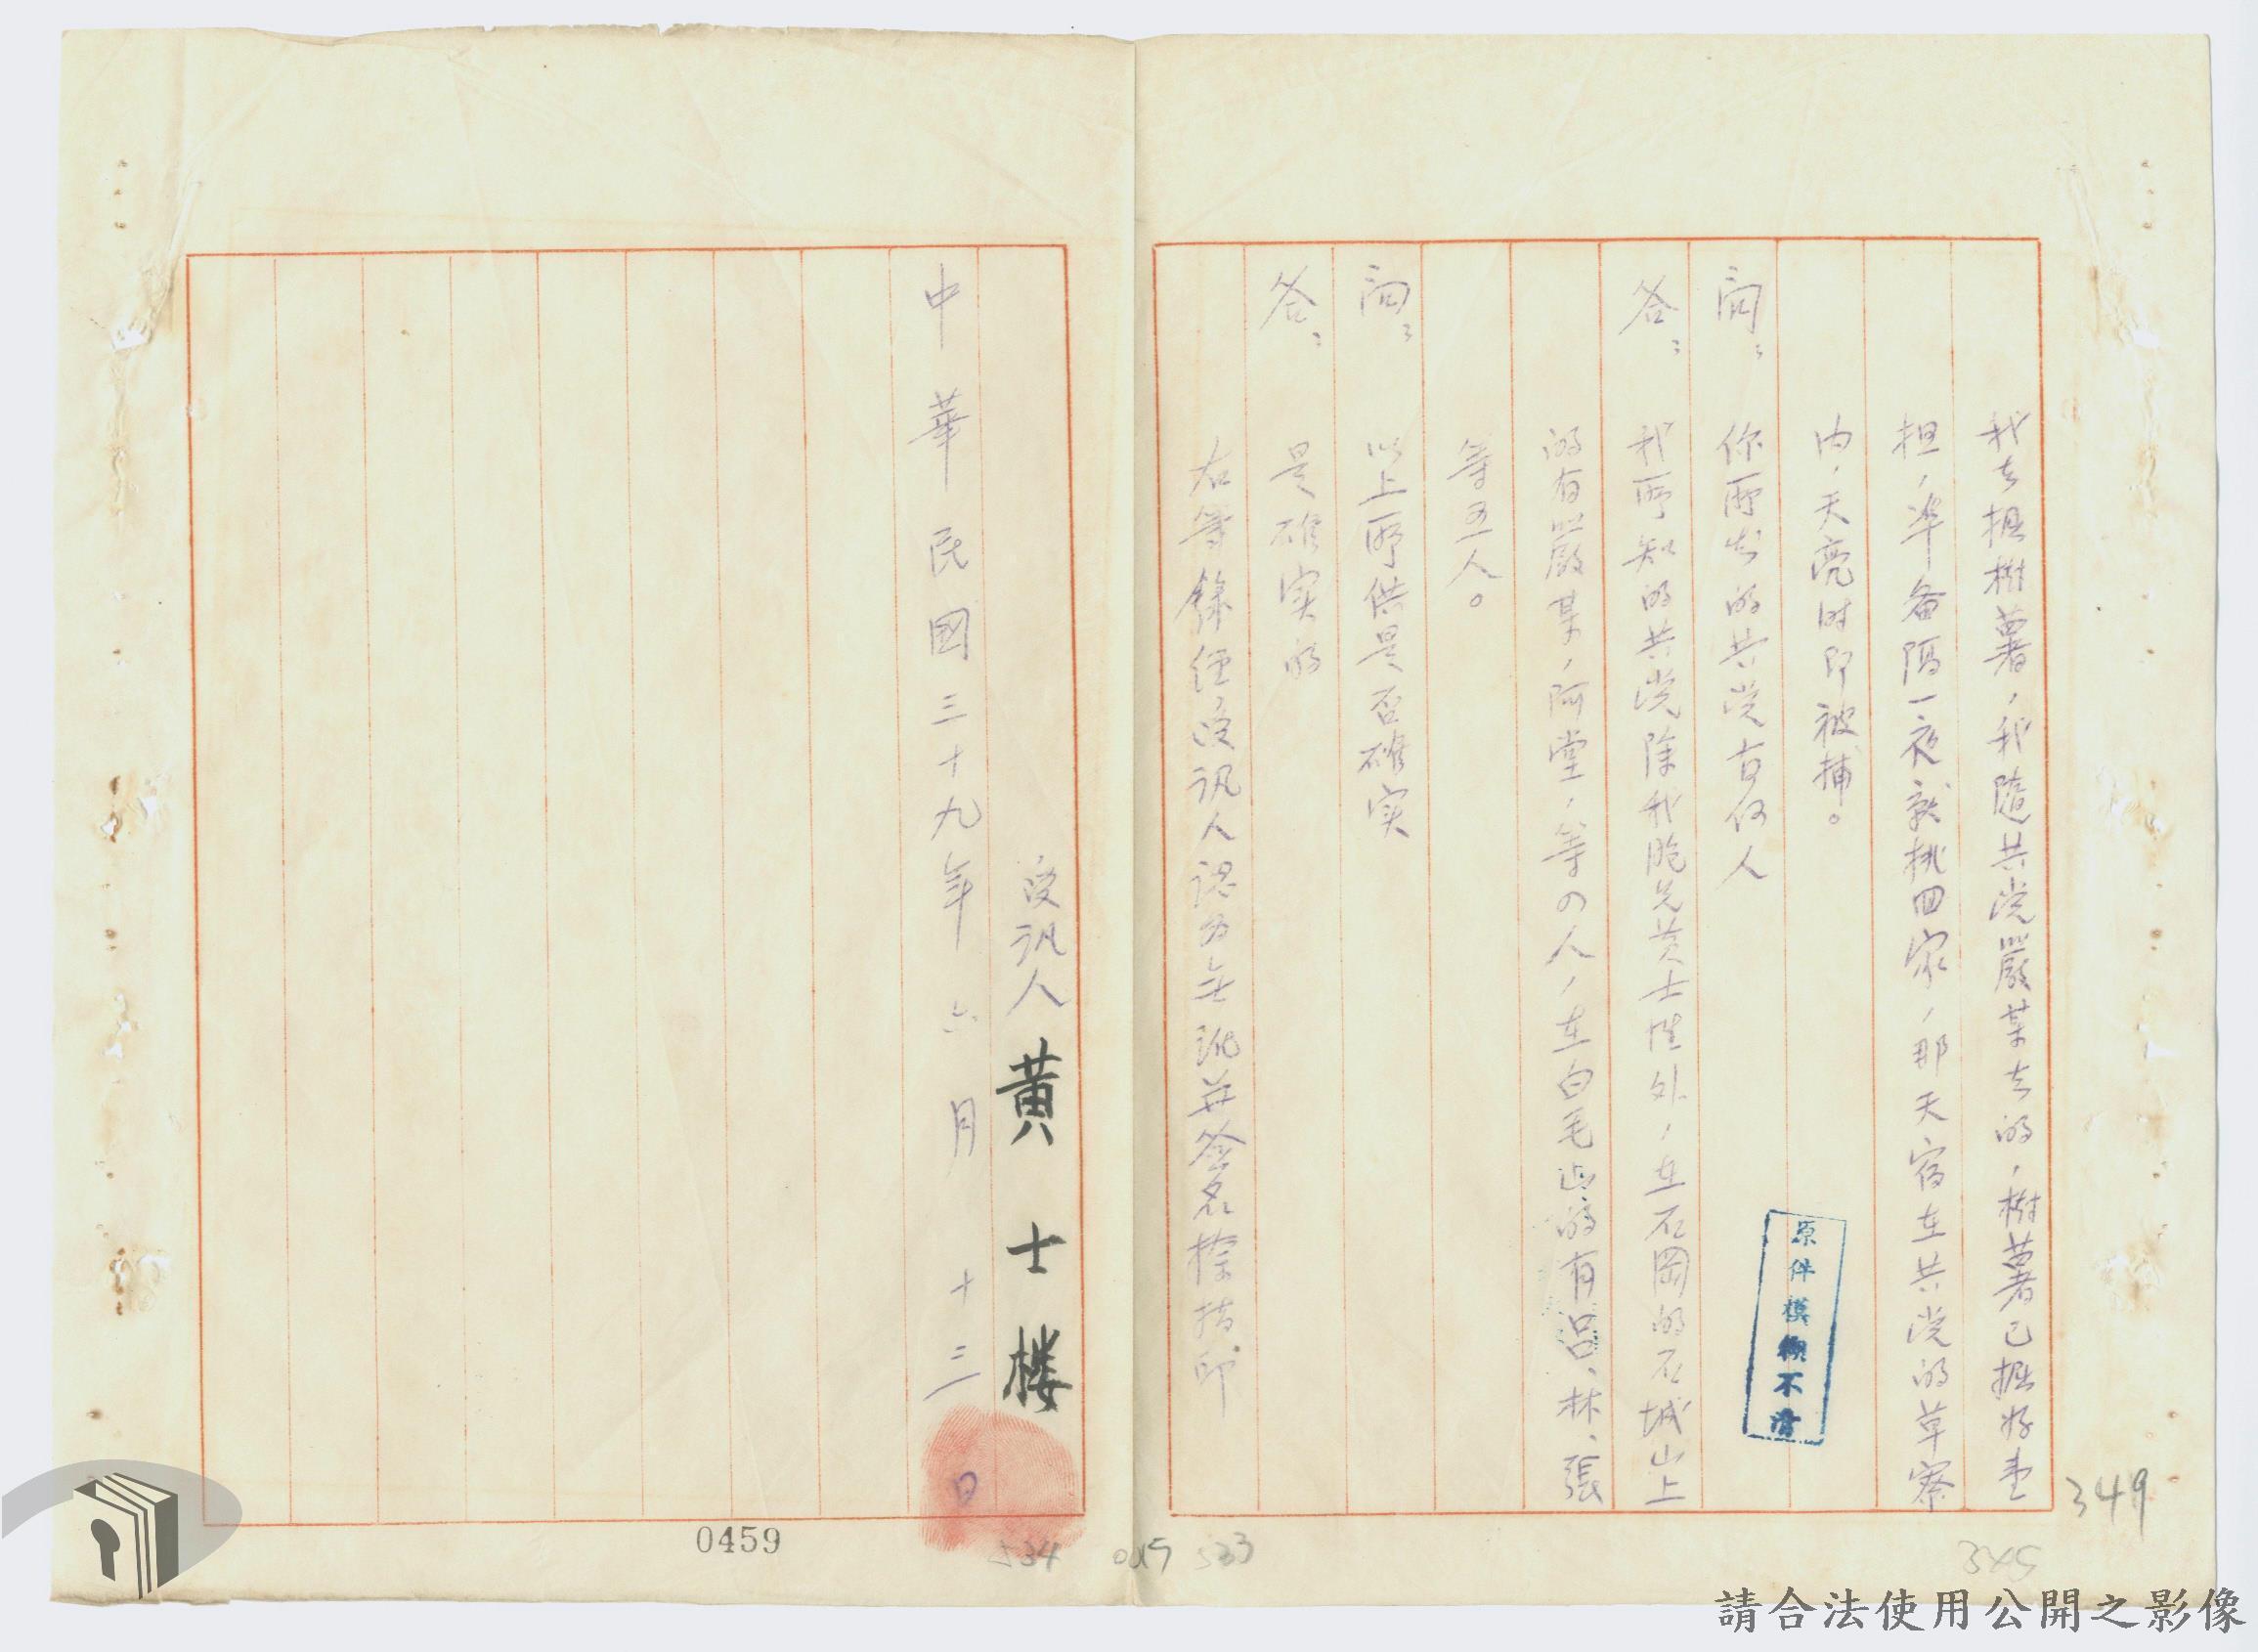 我去担樹薯，我隨共党嚴某去的，樹薯已掘好壹
担，準备隔一夜就挑回家，那天宿在共党的草寮
内，天亮时即被捕。
问： 你所知的共党有何人
答： 我所知的共党除我胞兄黄士性外，在石岡的石城山上
的有嚴某，阿堂，等四人，在白毛山的有呂、林、張
等五人。
问： 以上所供是否確实
答： 是確实的
右筆錄经受讯人認为無訛並簽名捺指印
受讯人 黄士楼
中華民國三十九年六月十三日
原件模糊不清
349
345
533
045
534
0459
請合法使用公開之影像